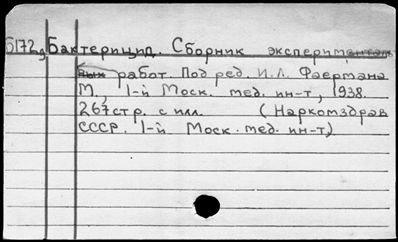 6172, Бактерицид. Сборник эксперименталь
ных работ. Под ред. И.Л. Фаермана
М., 1-й Моск. мед. ин-т, 1938.
267 стр. с илл. (Наркомздрав
СССР. 1-й Моск. мед. ин-т)